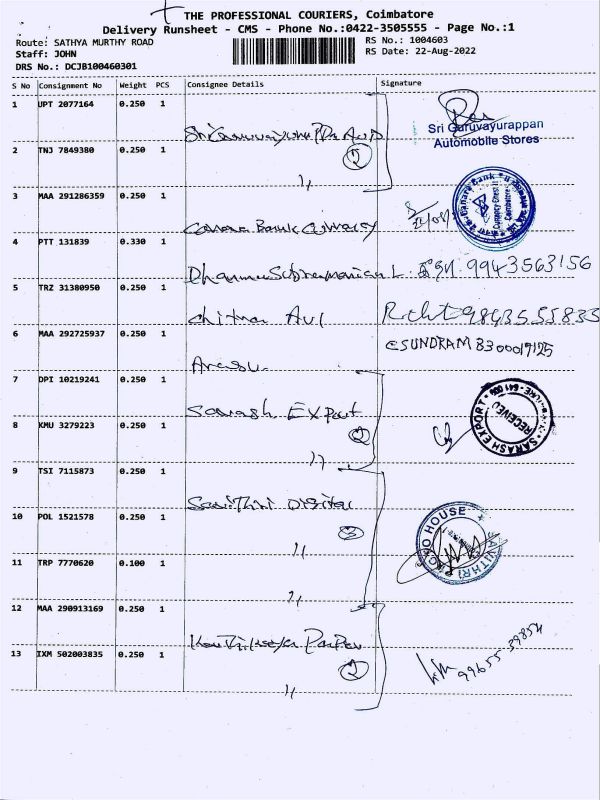 THE PROFESSIONAL COURIERS, Coimbatore
Delivery Runsheet - CMS - Phone No.:0422-3505555 - Page No.:1
Route: SATHYA MURTHY ROAD
Staff: JOHN
DRS No.: DCJB100460301
RS No.: 1004603
RS Date: 22-Aug-2022
S No Consignment No Weight PCS Consignee Details Signature
1 UPT 2077164 0.250 1
Sri Guruvayurappan
Automobile Stores
2 TNJ 7849380 0.250 1
2
3 MAA 291286359 0.250 1
Canara Bank Currency
4 PTT 131839 0.330 1
Dhanmu Subramanian L. 9943563156
5 TRZ 31380950 0.250 1
Chitra Avl 9843555833
6 MAA 292725937 0.250 1
ESUNDRAM 8300019125
Arasu
7 DPI 10219241 0.250 1
Sarash Export
SARASH EXPORT
RECEIVED
8 KMU 3279223 0.250 1
2
9 TSI 7115873 0.250 1
Savithri Digital
10 POL 1521578 0.250 1
3
SAVITHRI PHOTO HOUSE
11 TRP 7770620 0.100 1
12 MAA 290913169 0.250 1
Karthikeya Paper
13 IXM 502003835 0.250 1
2
99655-39854